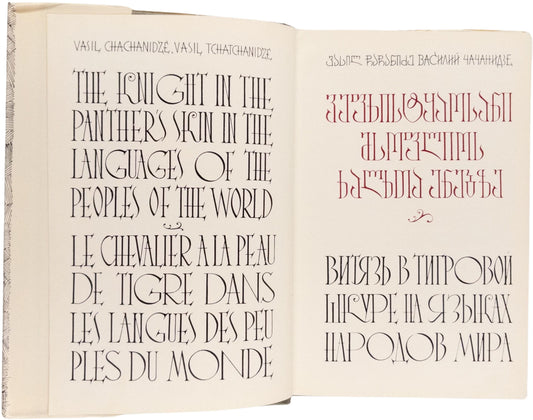 VASIL CHACHANIDZÉ. VASIL TCHATCHANIDZÉ
THE KNIGHT IN THE
PANTHER'S SKIN IN THE
LANGUAGES OF THE
PEOPLES OF THE WORLD
LE CHEVALIER A LA PEAU
DE TIGRE DANS
LES LANGUES DES PEU
PLES DU MONDE
ვასილ ჩაჩანიძე ВАСИЛИЙ ЧАЧАНИДЗЕ
ვეფხისტყაოსანი
მსოფლიოს
ხალხთა ენებზე
ВИТЯЗЬ В ТИГРОВОЙ
ШКУРЕ НА ЯЗЫКАХ
НАРОДОВ МИРА